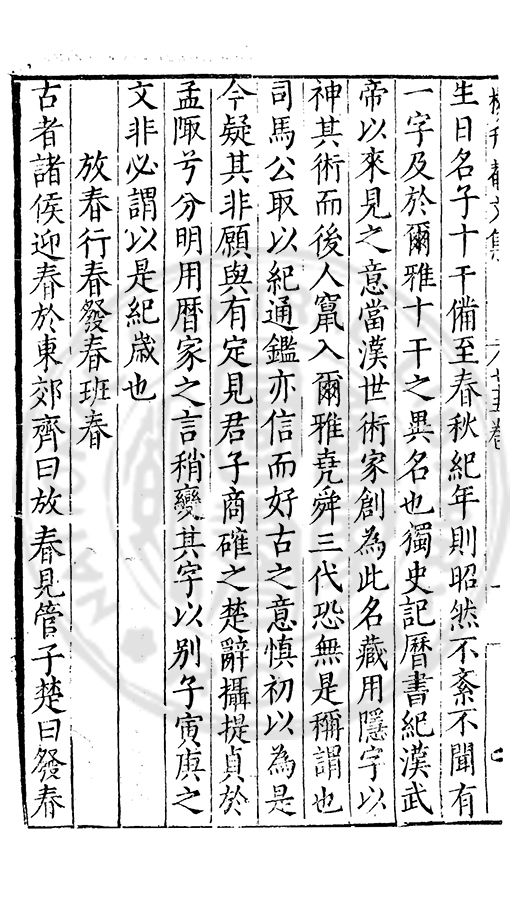 生日名子十干備至春秋紀年則昭然不紊不聞有
一字及於爾雅十干之異名也獨史記曆書紀漢武
帝以來見之意當漢世術家創為此名藏用隱字以
神其術而後人竄入爾雅堯舜三代恐無是稱謂也
司馬公取以紀通鑑亦信而好古之意慎初以為是
今疑其非願與有定見君子商確之楚辭攝提貞於
孟陬兮分明用曆家之言稍變其字以別子寅庚之
文非必謂以是紀歲也
放春行春發春班春
古者諸侯迎春於東郊齊曰放春見管子楚曰發春